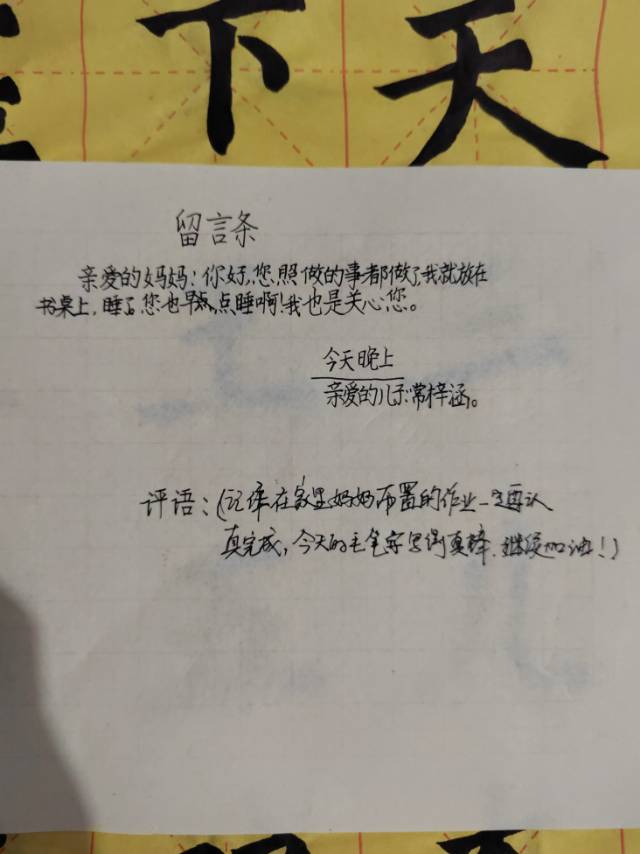 下天
留言条
亲爱的妈妈：你好，您照做的事都做了，我就放在
书桌上，睡了，您也早点，点睡啊！我也是关心您。
今天晚上
亲爱的儿子：常梓涵。
评语：（记住在家里妈妈布置的作业一定要认
真完成，今天的毛笔字写得真棒，继续加油！）